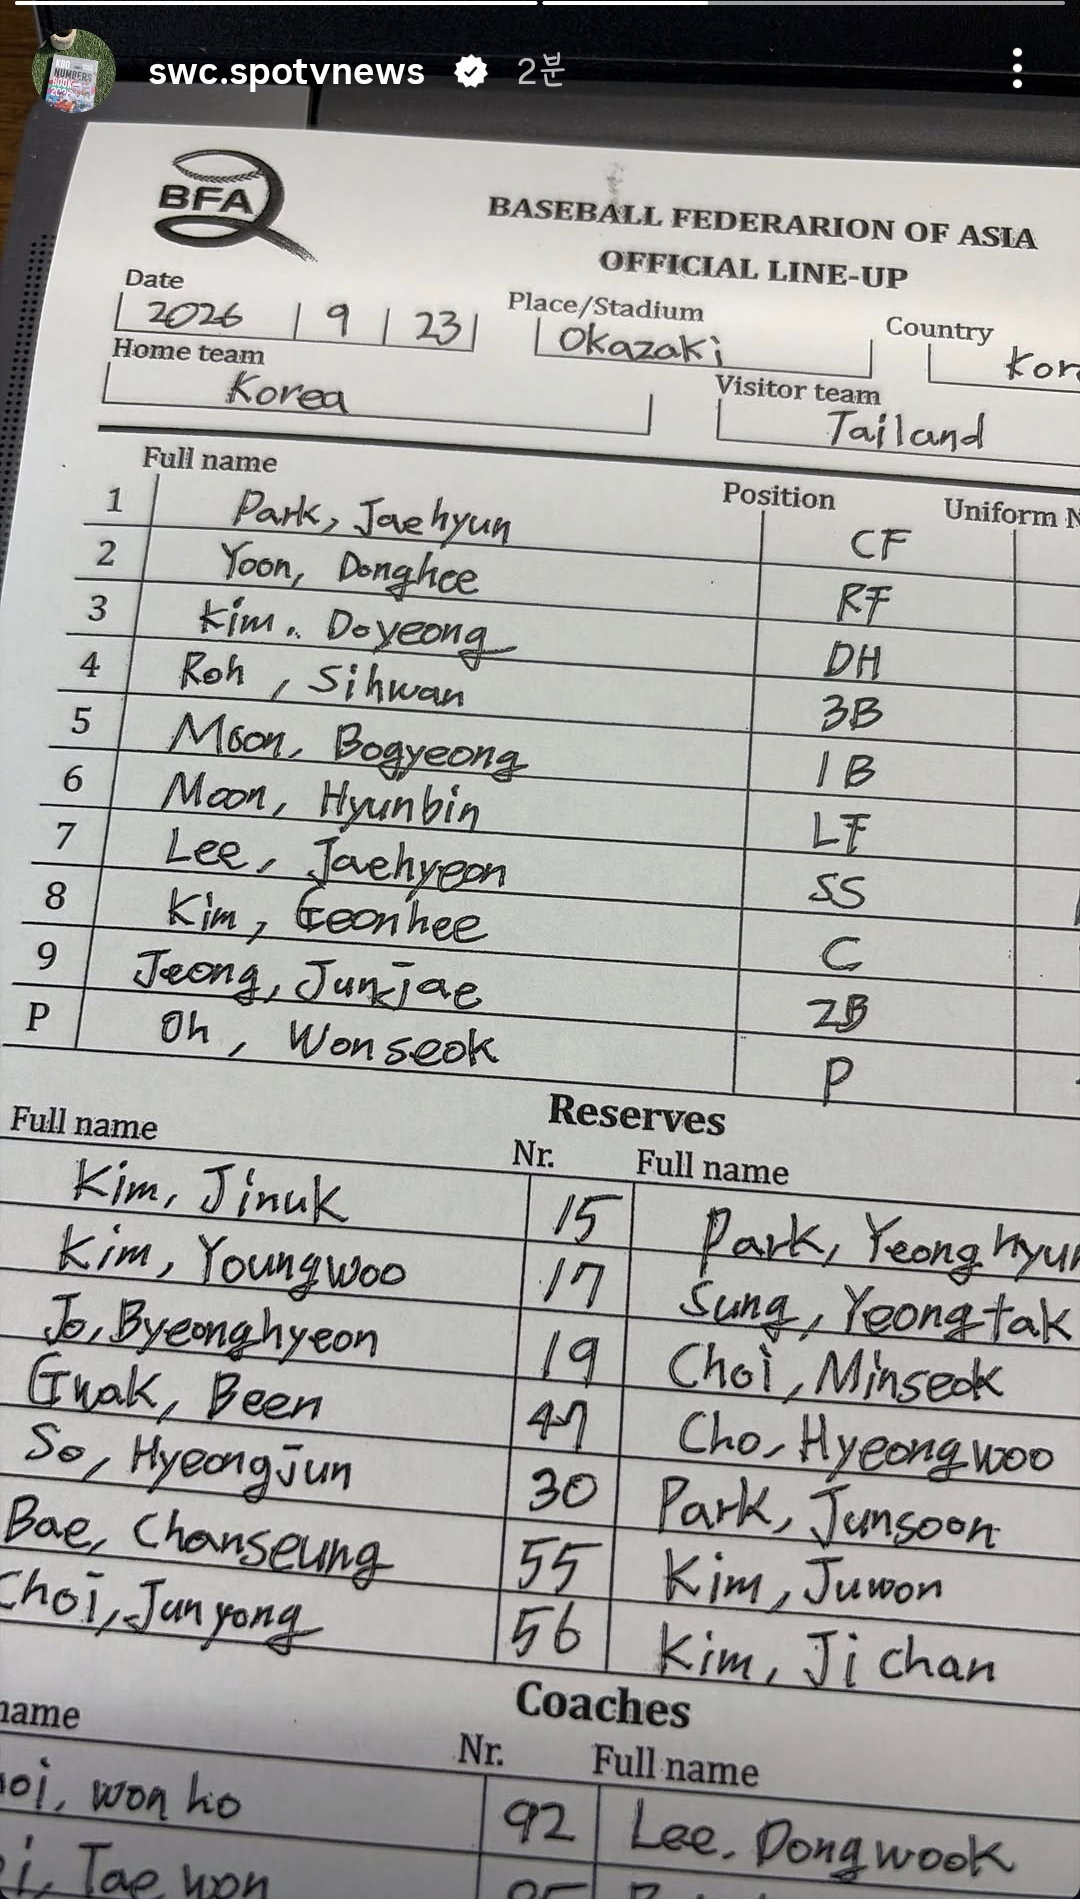 swc.spotvnews 2분
KBO NUMBERS BOOK
BFA
BASEBALL FEDERARION OF ASIA
OFFICIAL LINE-UP
Date
Place/Stadium
Country
2026 9 23
Okazaki
Kor
Home team
Visitor team
Korea
Tailand
Full name Position Uniform N
1 Park, Jaehyun CF
2 Yoon, Donghee RF
3 Kim, Doyeong DH
4 Roh, Sihwan 3B
5 Moon, Bogyeong 1B
6 Moon, Hyunbin LF
7 Lee, Jaehyeon SS
8 Kim, Geonhee C
9 Jeong, Junjae 2B
P Oh, Wonseok P
Reserves
Full name Nr. Full name
Kim, Jinuk 15 Park, Yeonghyun
Kim, Youngwoo 17 Sung, Yeongtak
Jo, Byeonghyeon 19 Choi, Minseok
Gwak, Been 47 Cho, Hyeongwoo
So, Hyeongjun 30 Park, Junsoon
Bae, Chanseung 55 Kim, Juwon
Choi, Junyong 56 Kim, Jichan
Coaches
name Nr. Full name
oi, won ho 92 Lee, Dongwook
i, Tae won